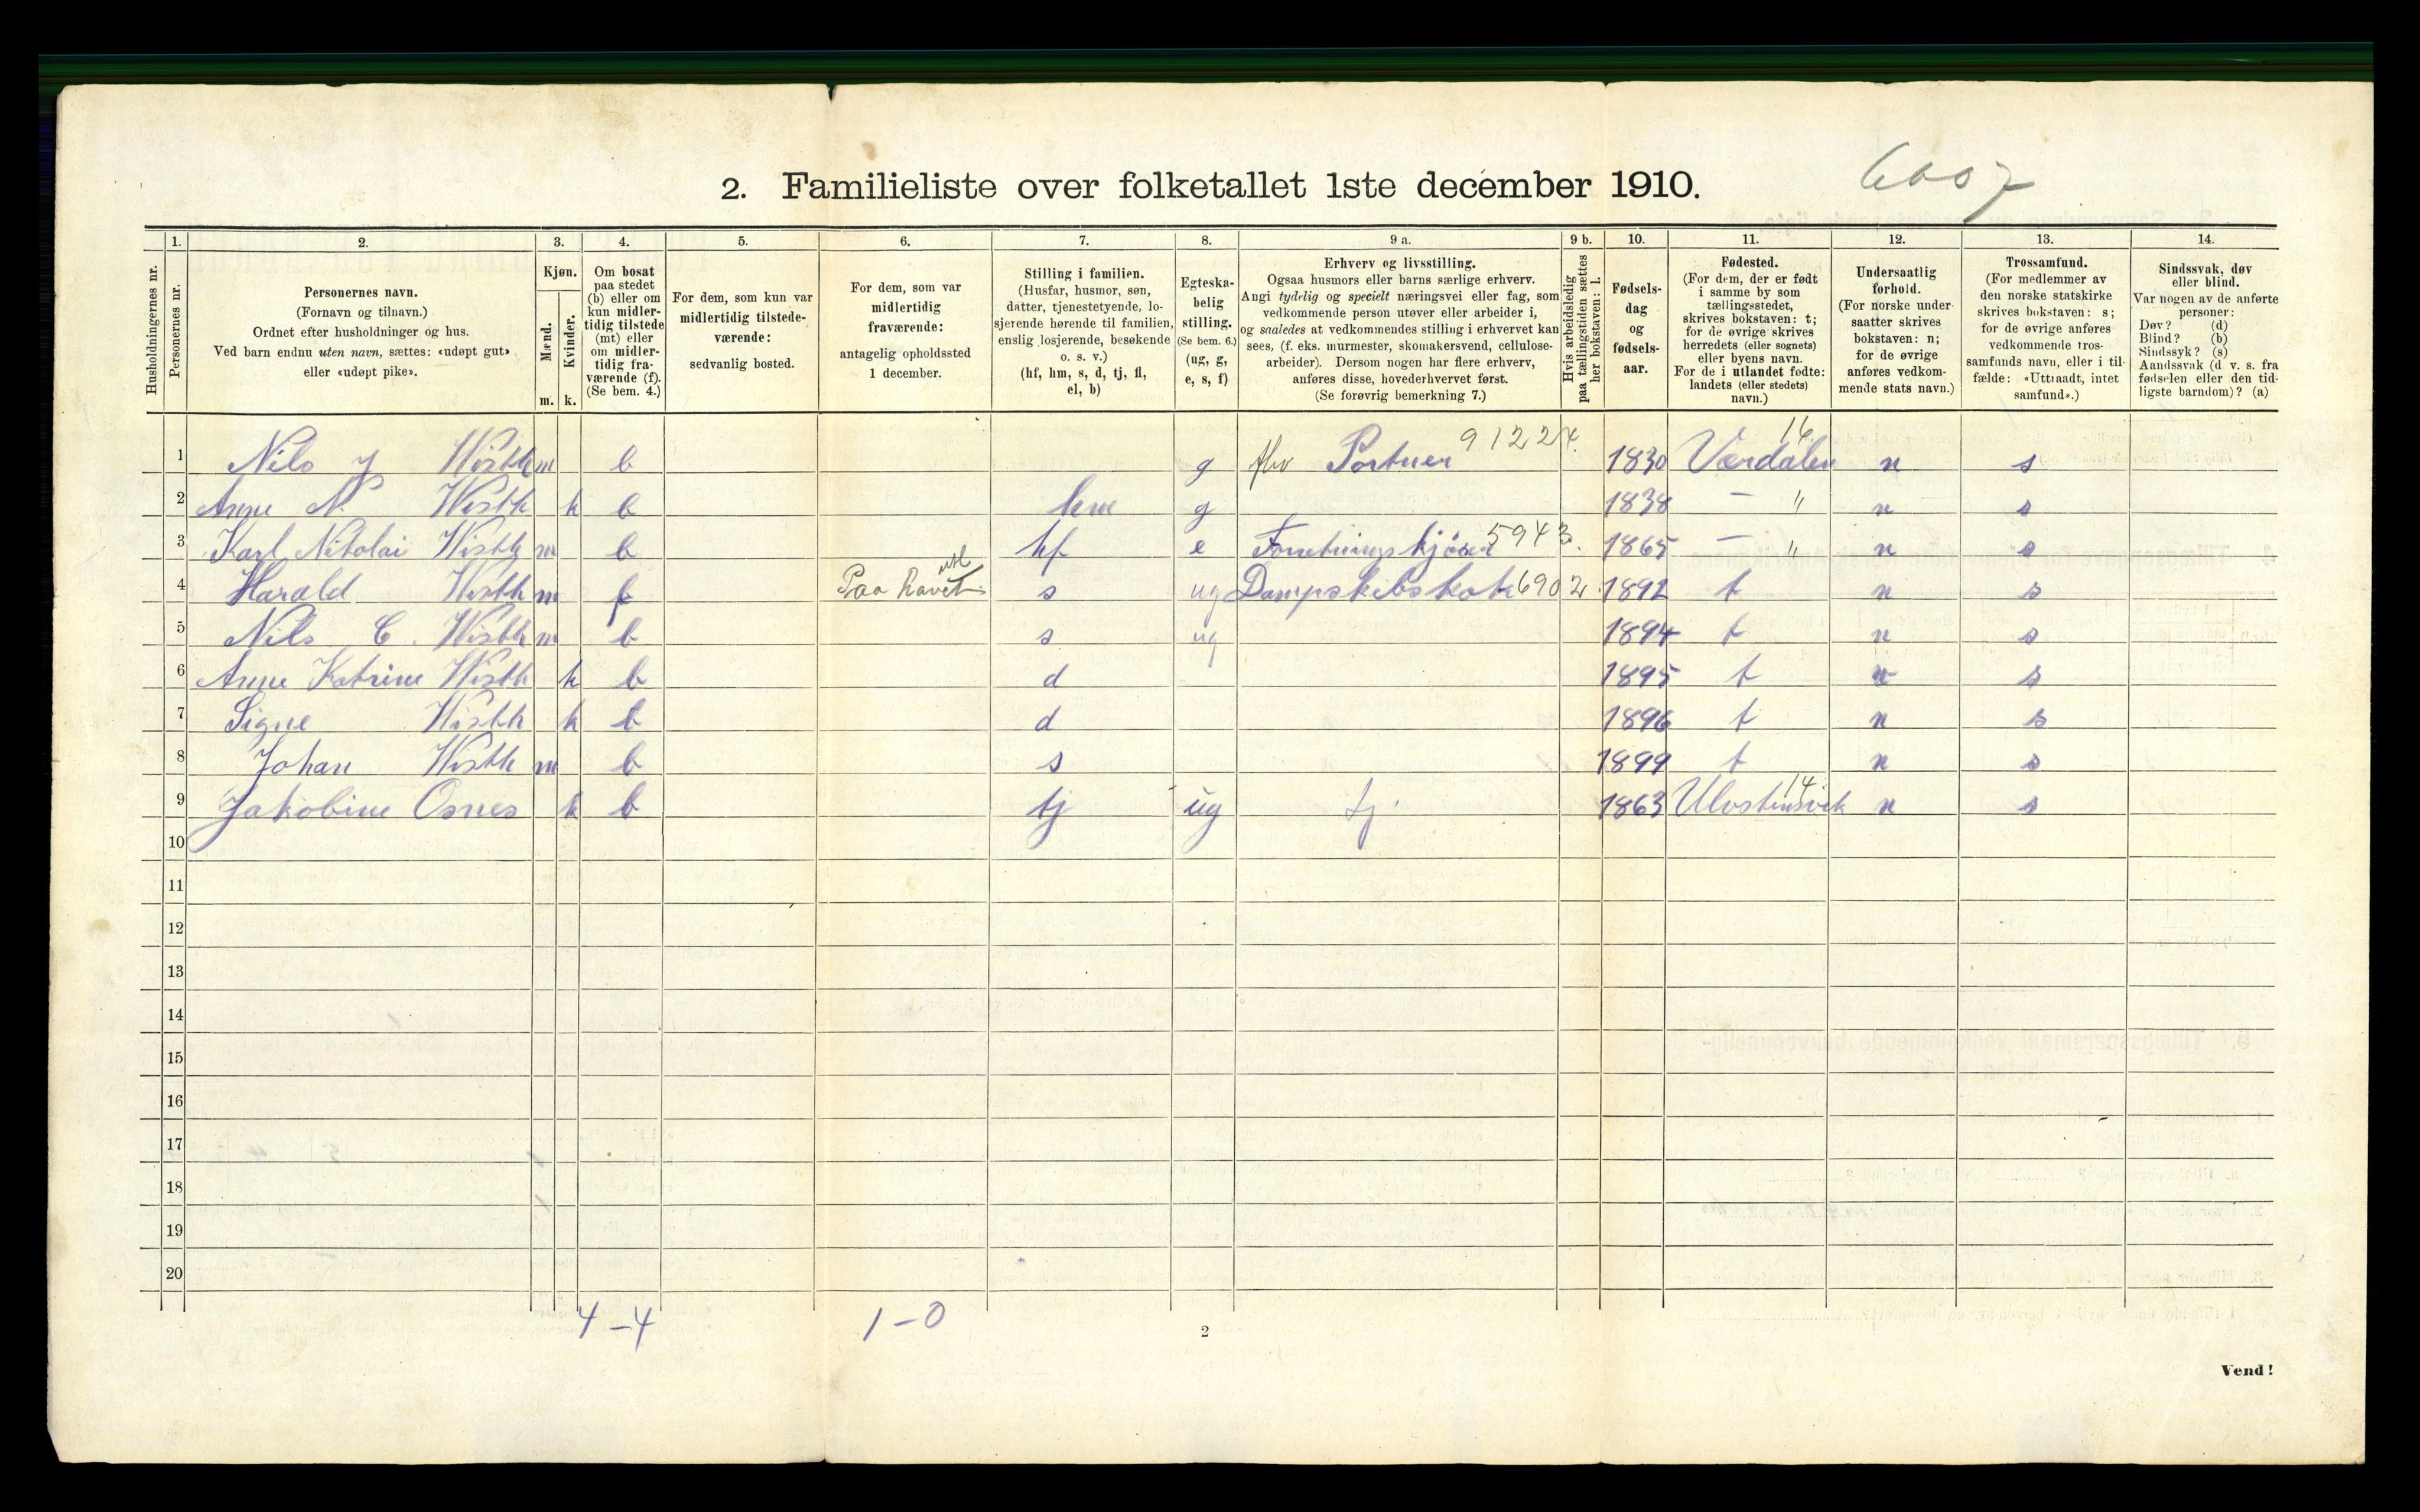 6007
2. Familieliste over folketallet 1ste december 1910.
Husholdningernes nr.
1. Personernes nr.
2. Personernes navn.
(Fornavn og tilnavn.)
Ordnet efter husholdninger og hus.
Ved barn endnu uten navn, sættes: «udøpt gut»
eller «udøpt pike».
3. Kjøn.
Mænd. m.
Kvinder. k.
4. Om bosat
paa stedet
(b) eller om
kun midler-
tidig tilstede
(mt) eller
om midler-
tidig fra-
værende (f).
(Se bem. 4.)
5. For dem, som kun var
midlertidig tilstede-
værende:
sedvanlig bosted.
6. For dem, som var
midlertidig
fraværende:
antagelig opholdssted
1 december.
7. Stilling i familien.
(Husfar, husmor, søn,
datter, tjenestetyende, lo-
sjerende hørende til familien,
enslig losjerende, besøkende
o. s. v.)
(hf, hm, s, d, tj, fl,
el, b)
8. Egteska-
belig
stilling.
(Se bem. 6.)
(ug, g,
e, s, f)
9 a. Erhverv og livsstilling.
Ogsaa husmors eller barns særlige erhverv.
Angi tydelig og specielt næringsvei eller fag, som
vedkommende person utøver eller arbeider i,
og saaledes at vedkommendes stilling i erhvervet kan
sees, (f. eks. murmester, skomakersvend, cellulose-
arbeider). Dersom nogen har flere erhverv,
anføres disse, hovederhvervet først.
(Se forøvrig bemerkning 7.)
9 b. Hvis arbeidsledig
paa tællingstiden sættes
her bokstaven: l.
10. Fødsels-
dag
og
fødsels-
aar.
11. Fødested.
(For dem, der er født
i samme by som
tællingsstedet,
skrives bokstaven: t;
for de øvrige skrives
herredets (eller sognets)
eller byens navn.
For de i utlandet fødte:
landets (eller stedets)
navn.)
12. Undersaatlig
forhold.
(For norske under-
saatter skrives
bokstaven: n;
for de øvrige
anføres vedkom-
mende stats navn.)
13. Trossamfund.
(For medlemmer av
den norske statskirke
skrives bokstaven: s;
for de øvrige anføres
vedkommende tros-
samfunds navn, eller i til-
fælde: «Uttraadt, intet
samfund».)
14. Sindssvak, døv
eller blind.
Var nogen av de anførte
personer:
Døv? (d)
Blind? (b)
Sindssyk? (s)
Aandssvak (d v. s. fra
fødselen eller den tid-
ligste barndom)? (a)
1 Nils J Wisth m b g fhv Portner 91224. 1830 Værdalen 16 n s
2 Anne N. Wisth k b hm g 1838 — " n s
3 Karl Nikolai Wisth m b hf e Forretningskjører 5943. 1865 — " n s
4 Harald Wisth m f Paa havet utl s ug Dampskibskok 6902. 1892 t n s
5 Nils C. Wisth m b s ug 1894 t n s
6 Anne Katrine Wisth k b d 1895 t n s
7 Signe Wisth k b d 1896 t n s
8 Johan Wisth m b s 1899 t n s
9 Jakobine Osnes k b tj ug tj. 1863 Ulvstensvik 14 n s
10
11
12
13
14
15
16
17
18
19
20
4 – 4 1 – 0
2
Vend!